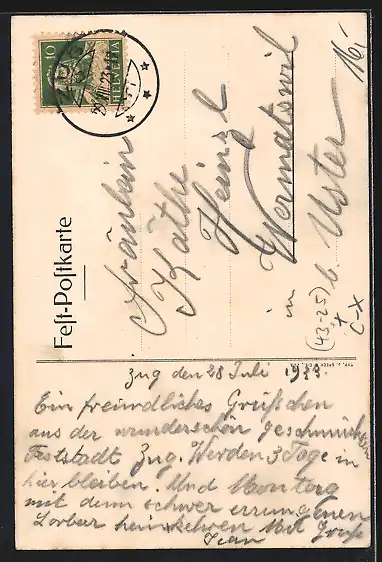 10
HELVETIA
ZUG
Fest-Postkarte
Fräulein
Käthe
Heinzl
Wermatswil
in b. Uster
16,-
(43-25)
x
C-X
Zug den 28 Juli 1923.
Ein freundliches Grüßchen
aus der wunderschön geschmückten
Feststadt Zug. Werden 3 Tage in
hier bleiben. Und Montag
mit dem schwer errungenen
Lorbeer heimkehren Mit Gruß
Jean